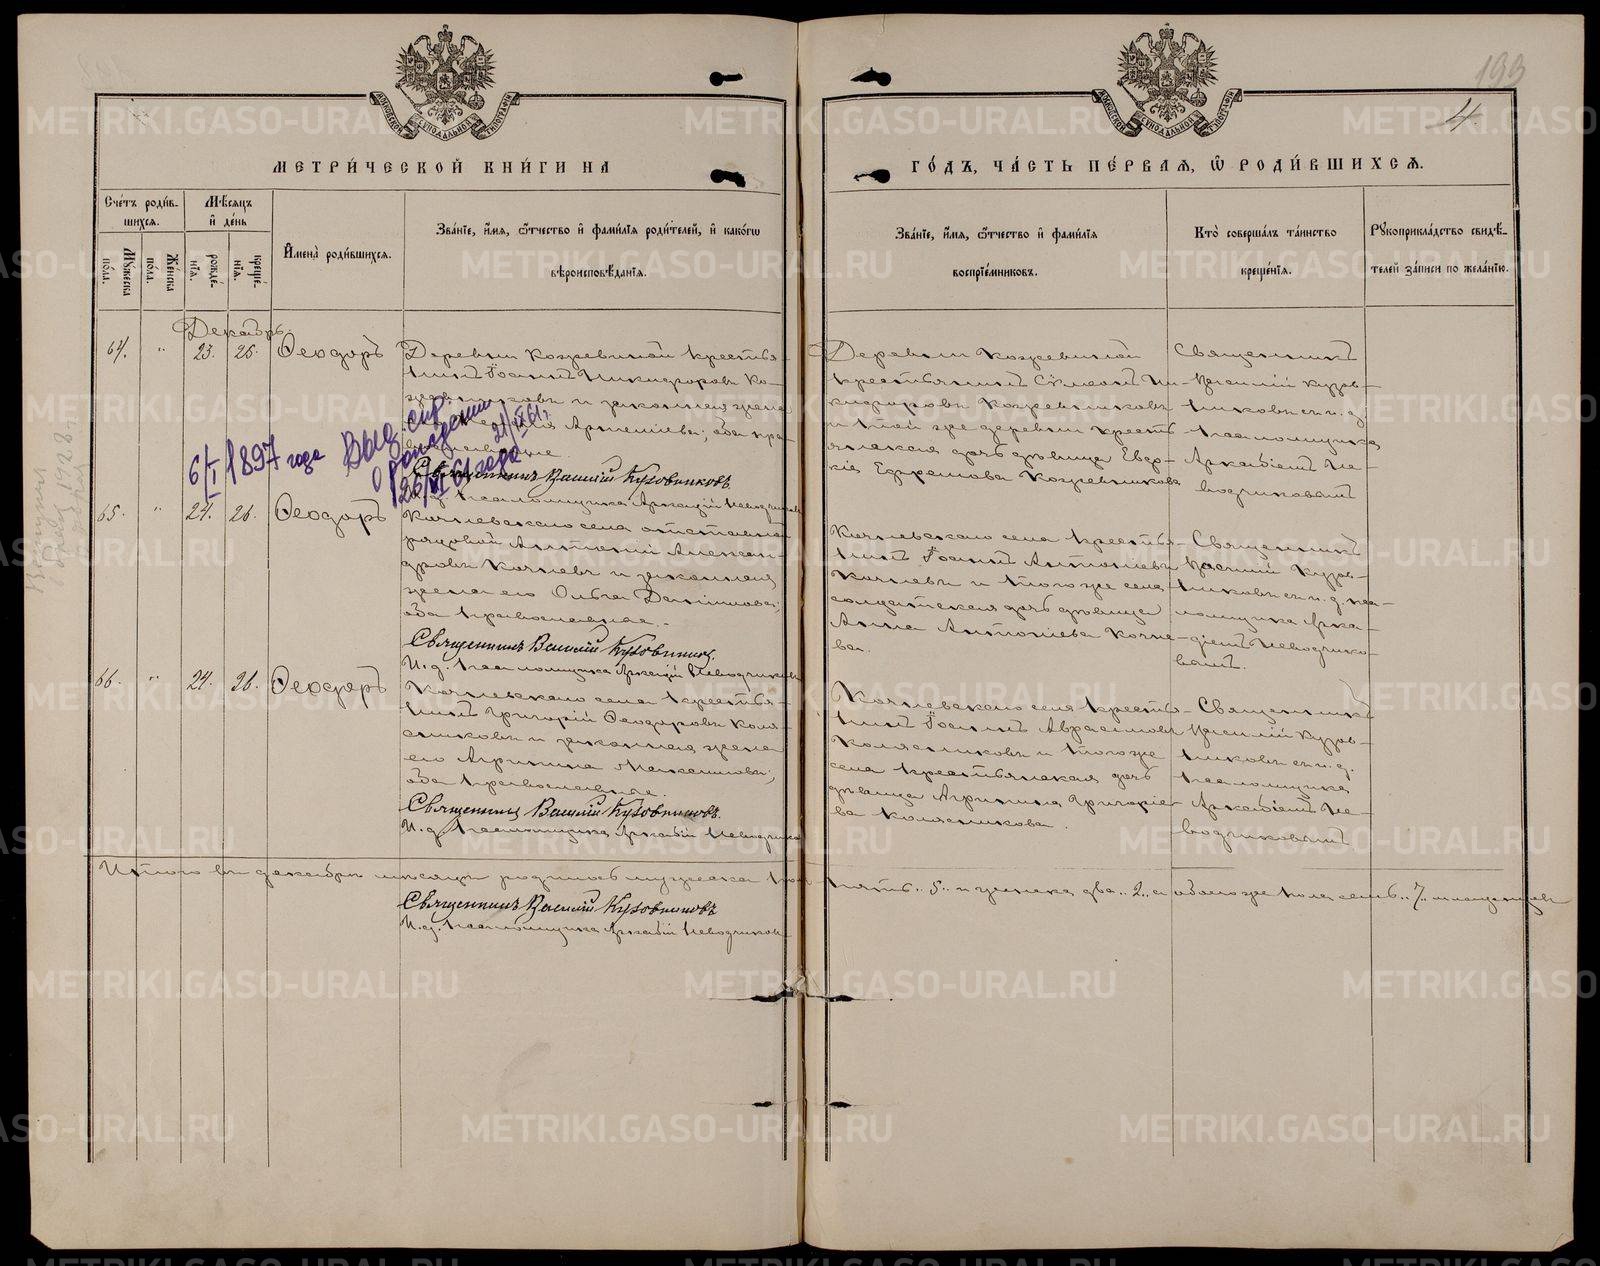 199
4.
МОСКОВСКОЙ СѴНОДАЛЬНОЙ ТИПОГРАФІИ
МОСКОВСКОЙ СѴНОДАЛЬНОЙ ТИПОГРАФІИ
МЕТРИ́ЧЕСКОЙ КНИ́ГИ НА
ГО́ДЪ, ЧА́СТЬ ПЕ́РВАѦ, Ѽ РОДИ́ВШИХСѦ.
Сче́тъ роди́в-
шихсѧ.
Мꙋжеска по́ла.
Же́нска по́ла.
Мѣ́сѧцъ
и҆ де́нь
рожде́-нїѧ.
креще́-нїѧ.
И҆мена̀ роди́вшихсѧ.
Зва́нїе, и҆́мѧ, ѻ҆́тчество и҆ фами́лїѧ роди́телей, и҆ како́гѡ
вѣроисповѣ́данїѧ.
Зва́нїе, и҆́мѧ, ѻ҆́тчество и҆ фами́лїѧ
воспрїе́мниковъ.
Кто̀ соверша́лъ та́инство
креще́нїѧ.
Рꙋкоприкла́дство свидѣ́-
телей за́писи по жела́нїю.
Декабрь.
64. " 23. 25. Ѳеодоръ
Деревни Кожевиной крестья-
нинъ Іоаннъ Никифоровъ Ко-
жевниковъ и законная жена
Артеміева; оба пра-
вославные.
Священникъ Василій Кузовниковъ
И.д. псаломщика Аркадій Неводчиковъ
Деревни Кожевиной
крестьянинъ Сѵмеонъ Ни-
кифоровъ Кожевниковъ
и той же деревни кресть-
янская дочь девица Евдо-
кія Ефремова Кожевникова
Священникъ
Василій Кузов-
никовъ съ и. д.
псаломщика
Аркадіемъ Не-
водчиковымъ
6/I 1897 года Выд. спр.
о рождении 21/XI 61 г.
26/XI 61 года
65. " 24. 26. Ѳеодоръ
Кочневскаго села отставной
рядовой Антоній Алексан-
дровъ Кочневъ и законная
жена его Ольга Даніилова;
оба православные.
Священникъ Василій Кузовниковъ.
И.д. псаломщика Аркадій Неводчиковъ
Кочневскаго села крестья-
нинъ Іоаннъ Антоніевъ
Кочневъ и того же села
солдатская дочь девица
Анна Антоніева Кочне-
ва.
Священникъ
Василій Кузов-
никовъ съ и. д. пса-
ломщика Арка-
діемъ Неводчико-
вымъ.
66. " 24. 26. Ѳеодоръ
Кочневскаго села крестья-
нинъ Григорій Ѳеодоровъ Коля-
сниковъ и законная жена
его Агрипина Максимова;
оба православные.
Священникъ Василій Кузовниковъ.
И.д. псаломщика Аркадій Неводчиковъ
Кочневскаго села крестья-
нинъ Іоаннъ Аврамовъ
Колясниковъ и того же
села крестьянская дочь
девица Агрипина Григоріе-
ва Колясникова.
Священникъ
Василій Кузов-
никовъ съ и. д.
псаломщика
Аркадіемъ Не-
водчиковымъ
Итого въ декабрѣ мѣсяцѣ родилось мужеска пола пять „5„ и женска два „2„ а обоего же пола семь „7„ младенцевъ
Священникъ Василій Кузовниковъ
И.д. псаломщика Аркадій Неводчиковъ
METRIKI.GASO-URAL.RU